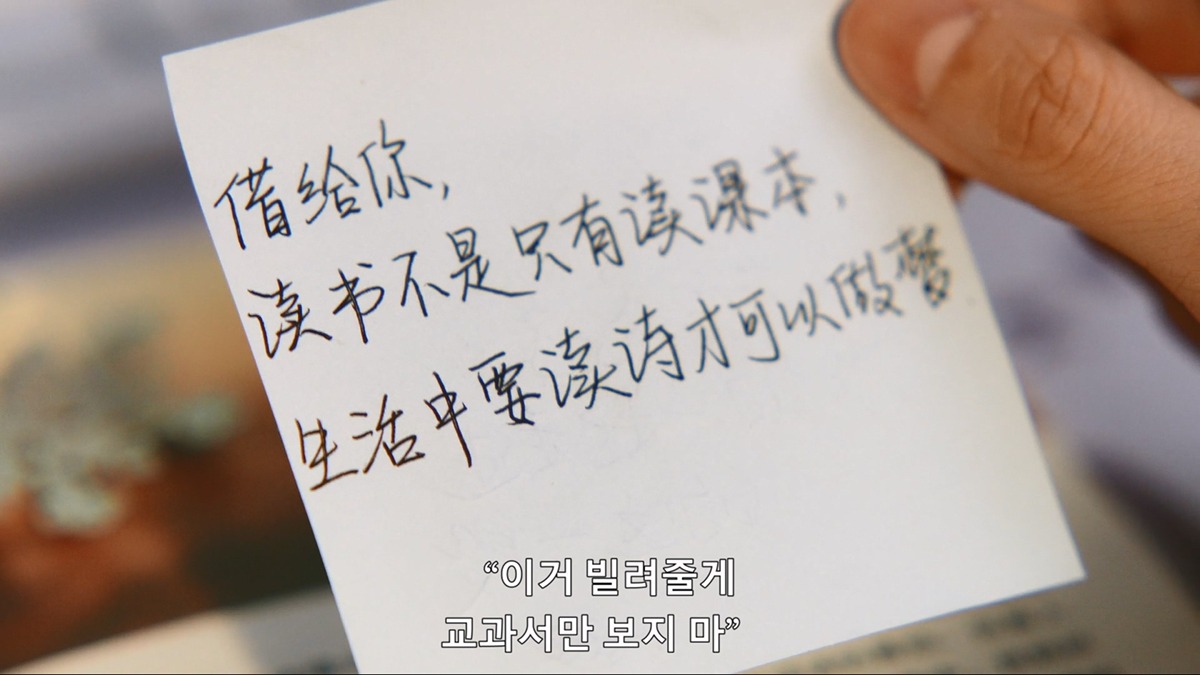 借给你,
读书不是只有读课本,
生活中要读诗才可以做梦
“이거 빌려줄게
교과서만 보지 마”